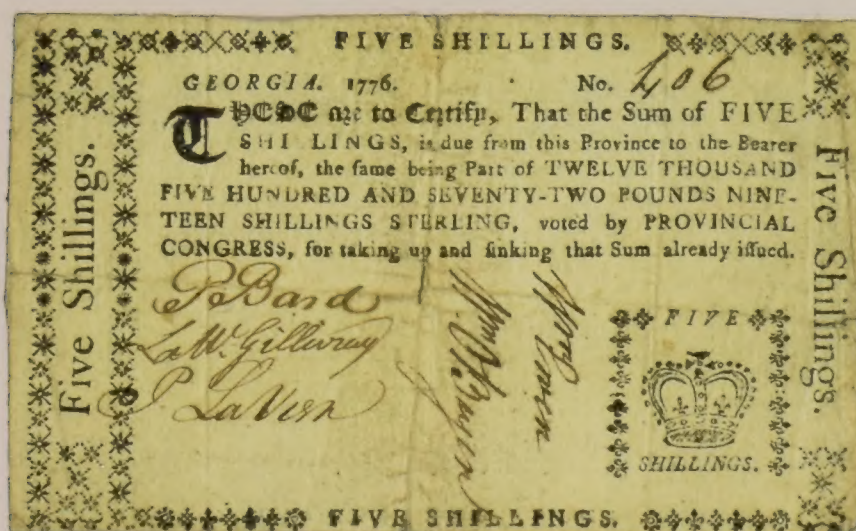 FIVE SHILLINGS.
GEORGIA. 1776. No. 406
THESE are to Certify, That the Sum of FIVE
SHILLINGS, is due from this Province to the Bearer
hereof, the same being Part of TWELVE THOUSAND
FIVE HUNDRED AND SEVENTY-TWO POUNDS NINE-
TEEN SHILLINGS STERLING, voted by PROVINCIAL
CONGRESS, for taking up and sinking that Sum already issued.
Five Shillings.
Five Shillings.
P Bard
La McGillivray
P LaVien
Wm
Wm O'Bryen
FIVE
SHILLINGS.
FIVE SHILLINGS.